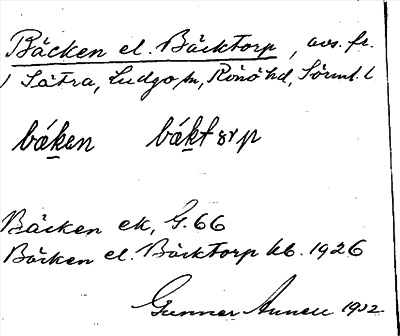 Bäcken el. Bäcktorp, avs. fr.
Sätra, Ludgo sn, Rönö hd, Sörml. l
báken bákt
Bäcken ek, G. 66
Bäcken el. Bäcktorp hb. 1926
Gunnar 1932